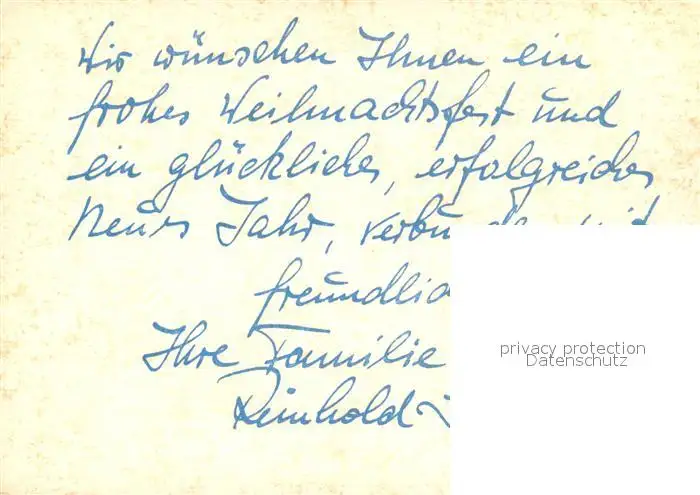 Wir wünschen Ihnen ein
frohes Weihnachtsfest und
ein glückliches, erfolgreiches
Neues Jahr, verbunden mit
freundlic
Ihre Familie
Reinhold
privacy protection
Datenschutz